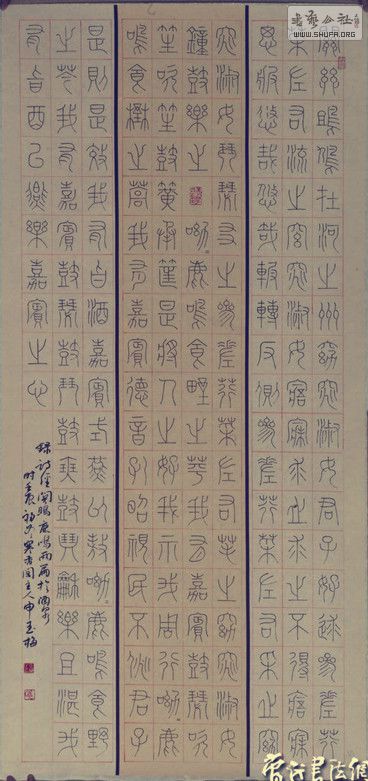 關關雎鳩在河之洲窈窕淑女君子好逑參差荇
菜左右流之窈窕淑女寤寐求之求之不得寤寐
思服悠哉悠哉輾轉反側參差荇菜左右采之窈
窕淑女琴瑟友之參差荇菜左右芼之窈窕淑女
鐘鼓樂之呦鹿鳴食野之苹我有嘉賓鼓瑟吹
笙吹笙鼓簧承筐是將人之好我示我周行呦鹿
鳴食野之蒿我有嘉賓德音孔昭視民不恌君子
是則是傚我有旨酒嘉賓式燕以敖呦鹿鳴食野
之芩我有嘉賓鼓瑟鼓琴鼓瑟鼓琴和樂且湛我
有旨酒以燕樂嘉賓之心
錄詩經關雎鹿鳴兩篇於
時壬辰初主人申玉
書藝公社
WWW.SHUFA.ORG